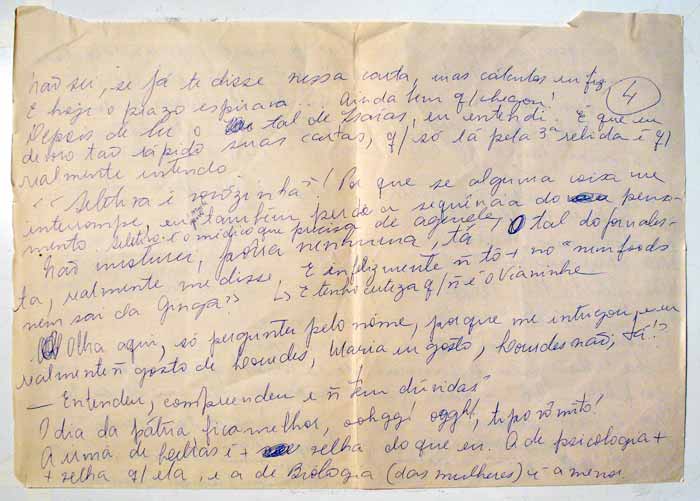 Não sei, se já te disse nessa carta, mas cálculos eu fiz
4
E hoje o prazo espirava... Ainda bem q/ chegou!
Depois de ler o tal de Isaías, eu entendi. É que eu
devoro tão rápido suas cartas, q/ só lá pela 3ª relida é q/
realmente entendo.
é vovózinha"! Por que se alguma coisa me
interrompe, eu também perde a sequência do pensa-
mento. é o médico que precisa de
Não misturei, porra nenhuma, tá. O tal do fornales-
ta, realmente me disse. E infelizmente ñ tô + no "nem foods
nem sai da Ginga" ↳ E tenho certeza q/ ñ é o Vianinha
Olha aqui, só perguntei pelo nome, porque me intrigou, e eu
realmente ñ gosto de Lourdes, Maria eu gosto, Lourdes não, tá!?
— Entendeu, compreendeu e ñ tem dúvidas"
O dia da pátria fica melhor, oohggi oggh!, tipo vômito!
A urna de é + velha do que eu. A de psicologia +
+ velha q/ ela, e a de Biologia (das mulheres) é a menor.